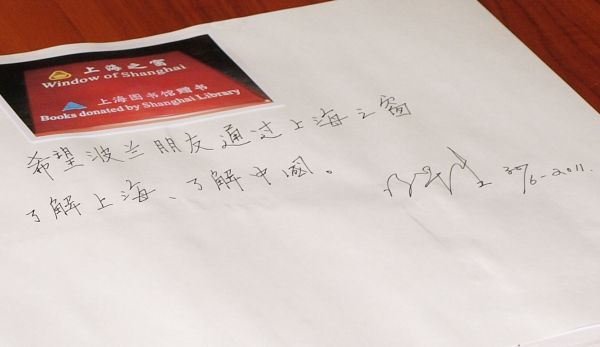 上海之窗
Window of Shanghai
上海图书馆赠书
Books donated by Shanghai Library
希望波兰朋友通过上海之窗
了解上海、了解中國。
30/6-2011.